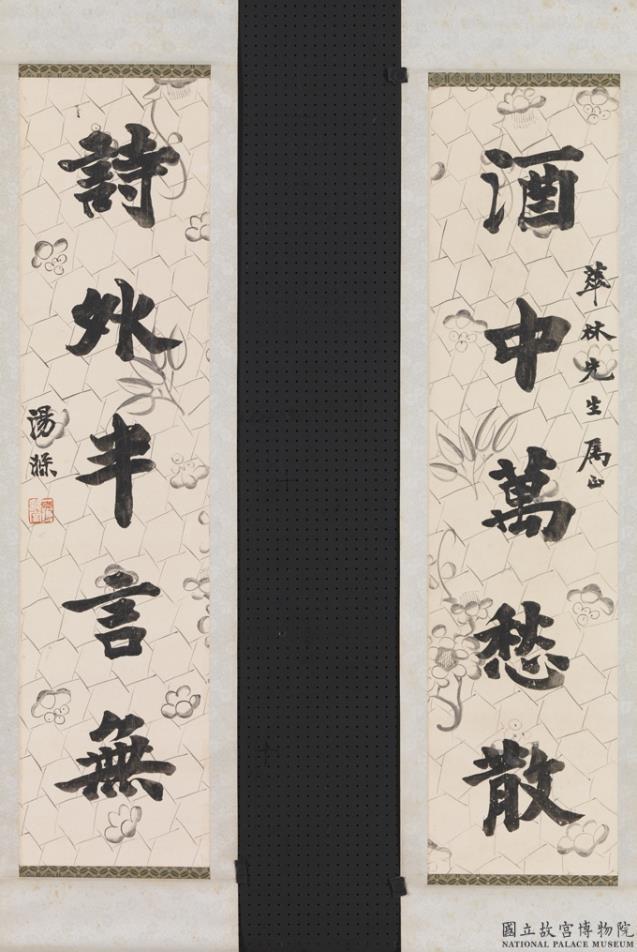 酒中萬愁散
林先生属正
詩外半言無
湯滌
國立故宮博物院
NATIONAL PALACE MUSEUM